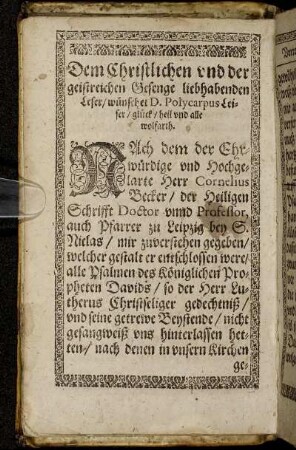 Dem Christlichen vnd der
geistreichen Gesenge liebhabenden
Leser / wünschet D. Polycarpus Lei-
ser / glück / heil vnd alle
wolfarth.
NAch dem der Ehr
würdige vnd Hochge-
larte Herr Cornelius
Becker / der Heiligen
Schrifft Doctor vnnd Professor,
auch Pfarrer zu Leipzig bey S.
Niclas / mir zuverstehen gegeben /
welcher gestalt er entschlossen were /
alle Psalmen des Königlichen Pro-
pheten Davids / so der Herr Lu-
therus Christseliger gedechtniß /
vnd seine getrewe Beystende / nicht
gesangweiß vns hinterlassen het-
ten / nach denen in vnsern Kirchen
ge-